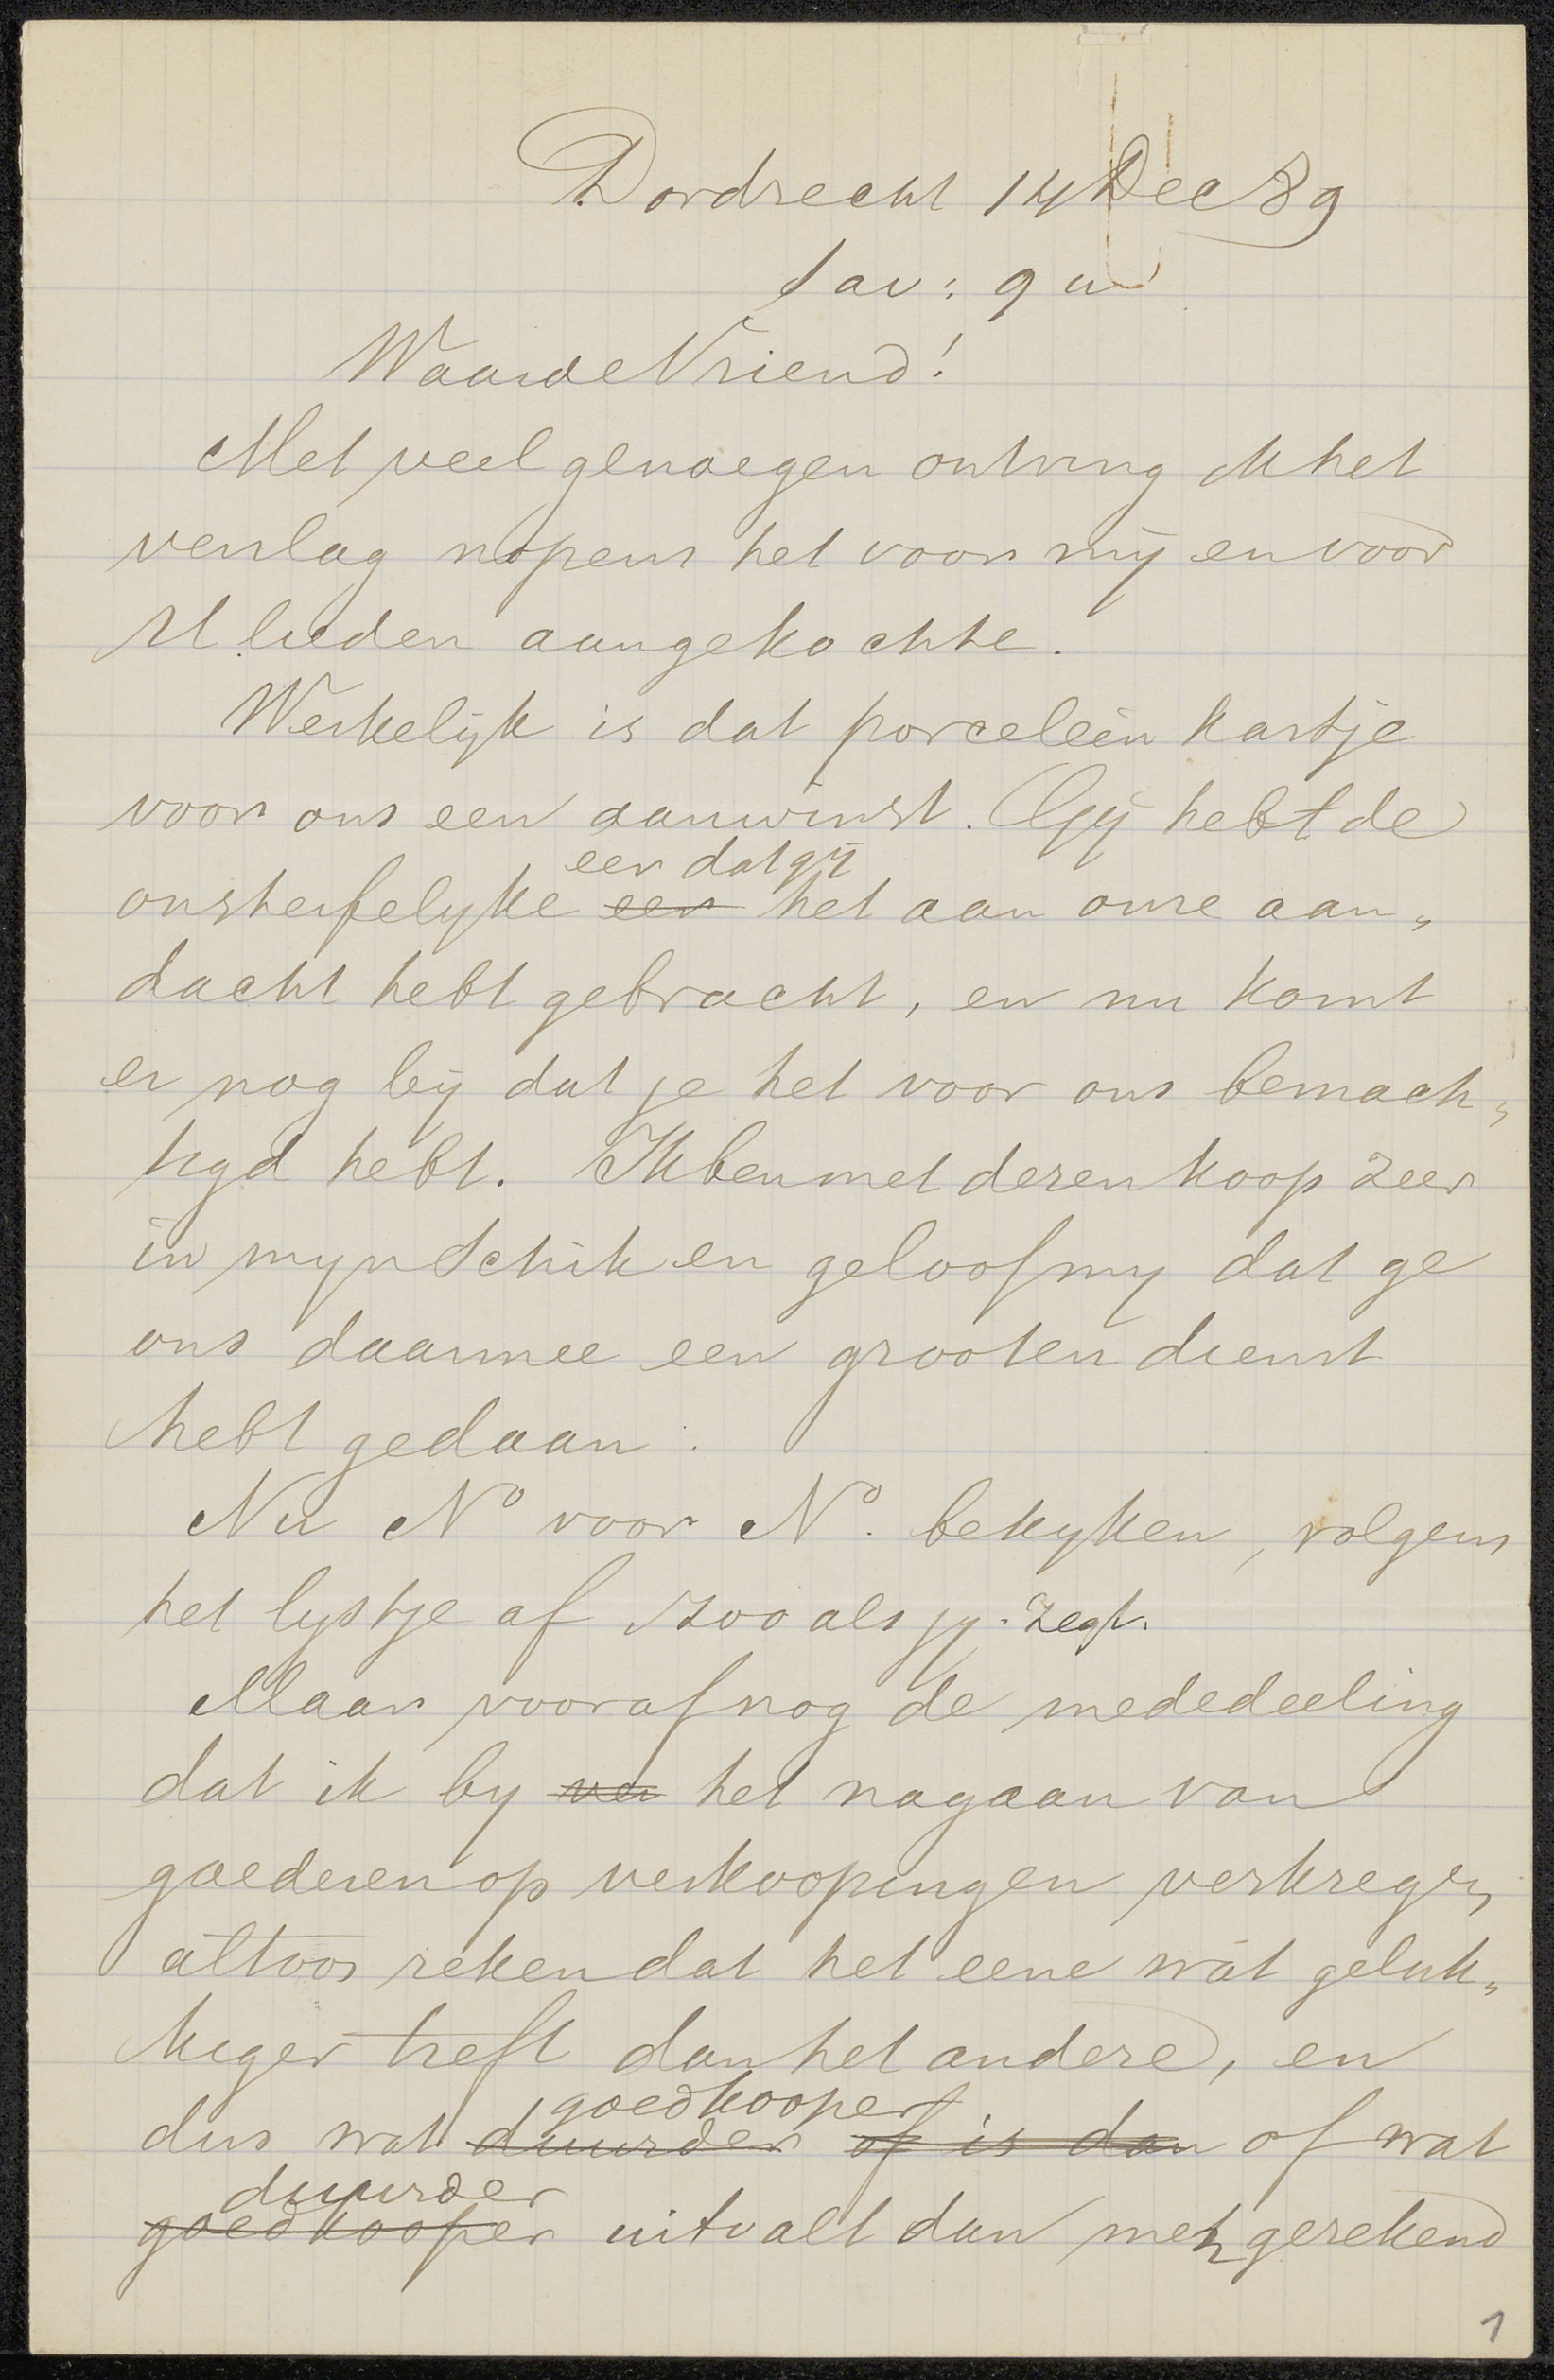 Dordrecht 14 Dec 89
sav: 9 u
Waarde Vriend!
Met veel genoegen ontving ik het
verslag nopens het voor mij en voor
Ulieden aangekochte.
Werkelijk is dat porcelein kastje
voor ons een aanwinst. Gij hebt de
eer dat gij
onsterfelyke eer het aan onse aan„
dacht hebt gebracht, en nu komt
er nog bij dat je het voor ons bemach„
tigd hebt. Ik ben met deren koop zeer
in myn schik en geloof my dat ge
ons daarmee een grooten dienst
hebt gedaan.
Nu No voor No. bekyken, volgens
het lystje af zooals jy zegt.
Maar vooraf nog de mededeeling
dat ik by ver het nagaan van
goederen op verkoopingen verkregen
altoos reken dat het eene wat geluk„
kiger treft dan het andere, en
goedkooper
dus wat duurder of is dan of wat
duurder
goedkooper uitvalt dan men gerekend
1